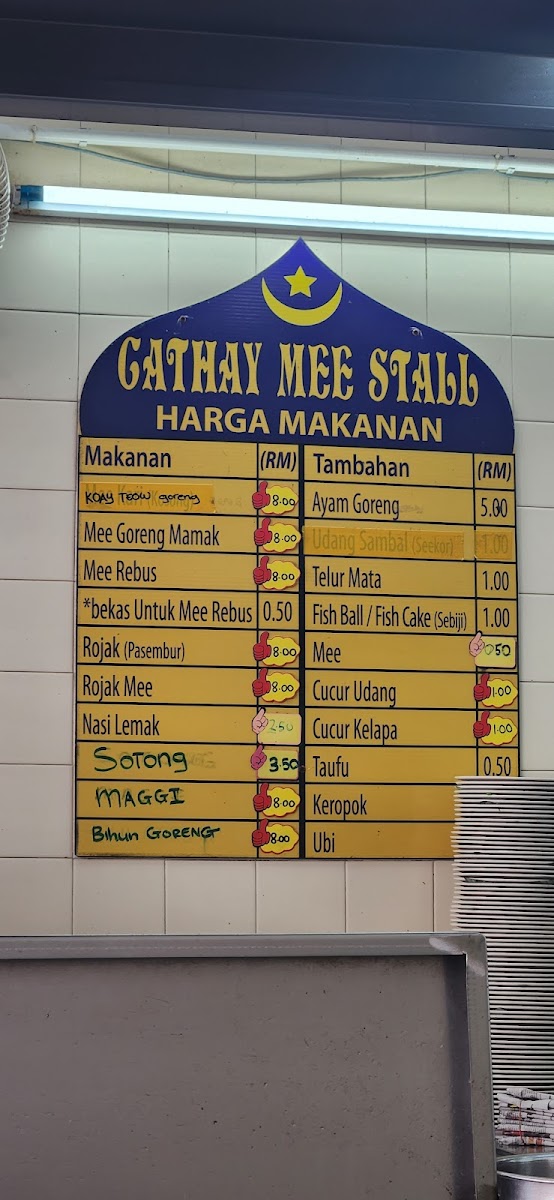 CATHAY MEE STALL
HARGA MAKANAN
Makanan (RM)
KOAY TEOW goreng 8.00
Mee Goreng Mamak 8.00
Mee Rebus 8.00
*bekas Untuk Mee Rebus 0.50
Rojak (Pasembur) 8.00
Rojak Mee 8.00
Nasi Lemak 2.50
SOTONG 3.50
MAGGI 8.00
BIHUN GORENG 8.00
Tambahan (RM)
Ayam Goreng 5.00
Udang Sambal (Seekor) 1.00
Telur Mata 1.00
Fish Ball / Fish Cake (Sebiji) 1.00
Mee 0.50
Cucur Udang 1.00
Cucur Kelapa 1.00
Taufu 0.50
Keropok
Ubi